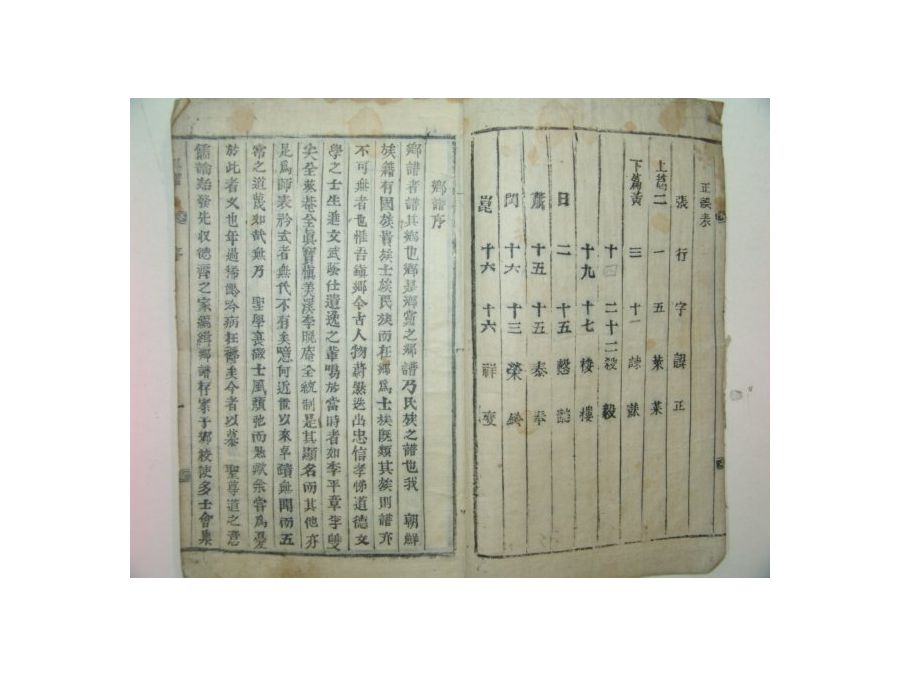 正誤表
張 行 字 誤 正
上篇 二 一 五 萊 菜
下篇 黃 三 十一
十四 二十二 殺 毅
十九 十七 棲 樓
日 二 十五
十五 十五 泰 奉
閃 十六 十三 榮
崑 十六 十六 祥
鄉譜序
鄉譜者譜其鄉也鄉是鄉黨之鄉譜乃氏族之譜也我 朝鮮
族籍有國族貴族士族民族而在鄉爲士族旣類其族則譜亦
不可無者也惟吾鎭鄉今古人物蔚然迭出忠信孝悌道德文
學之士生進文武蔭仕遺逸之輩鳴於當時者如李平章李雙
尖全菜菴全眞寶愼美溪李晩庵全統制是其顯名而其他亦
足爲師表矜式者無代不有矣噫何近世以來卓讀無聞而五
常之道幾如哉無乃 聖學喪微士風頹弛而然歟余嘗爲憂
於此者久也年過稀 吟病在 矣今者以慕 聖尊道之意
儒論始發先収德齊之家編緝鄉譜 于鄉校使多士會集